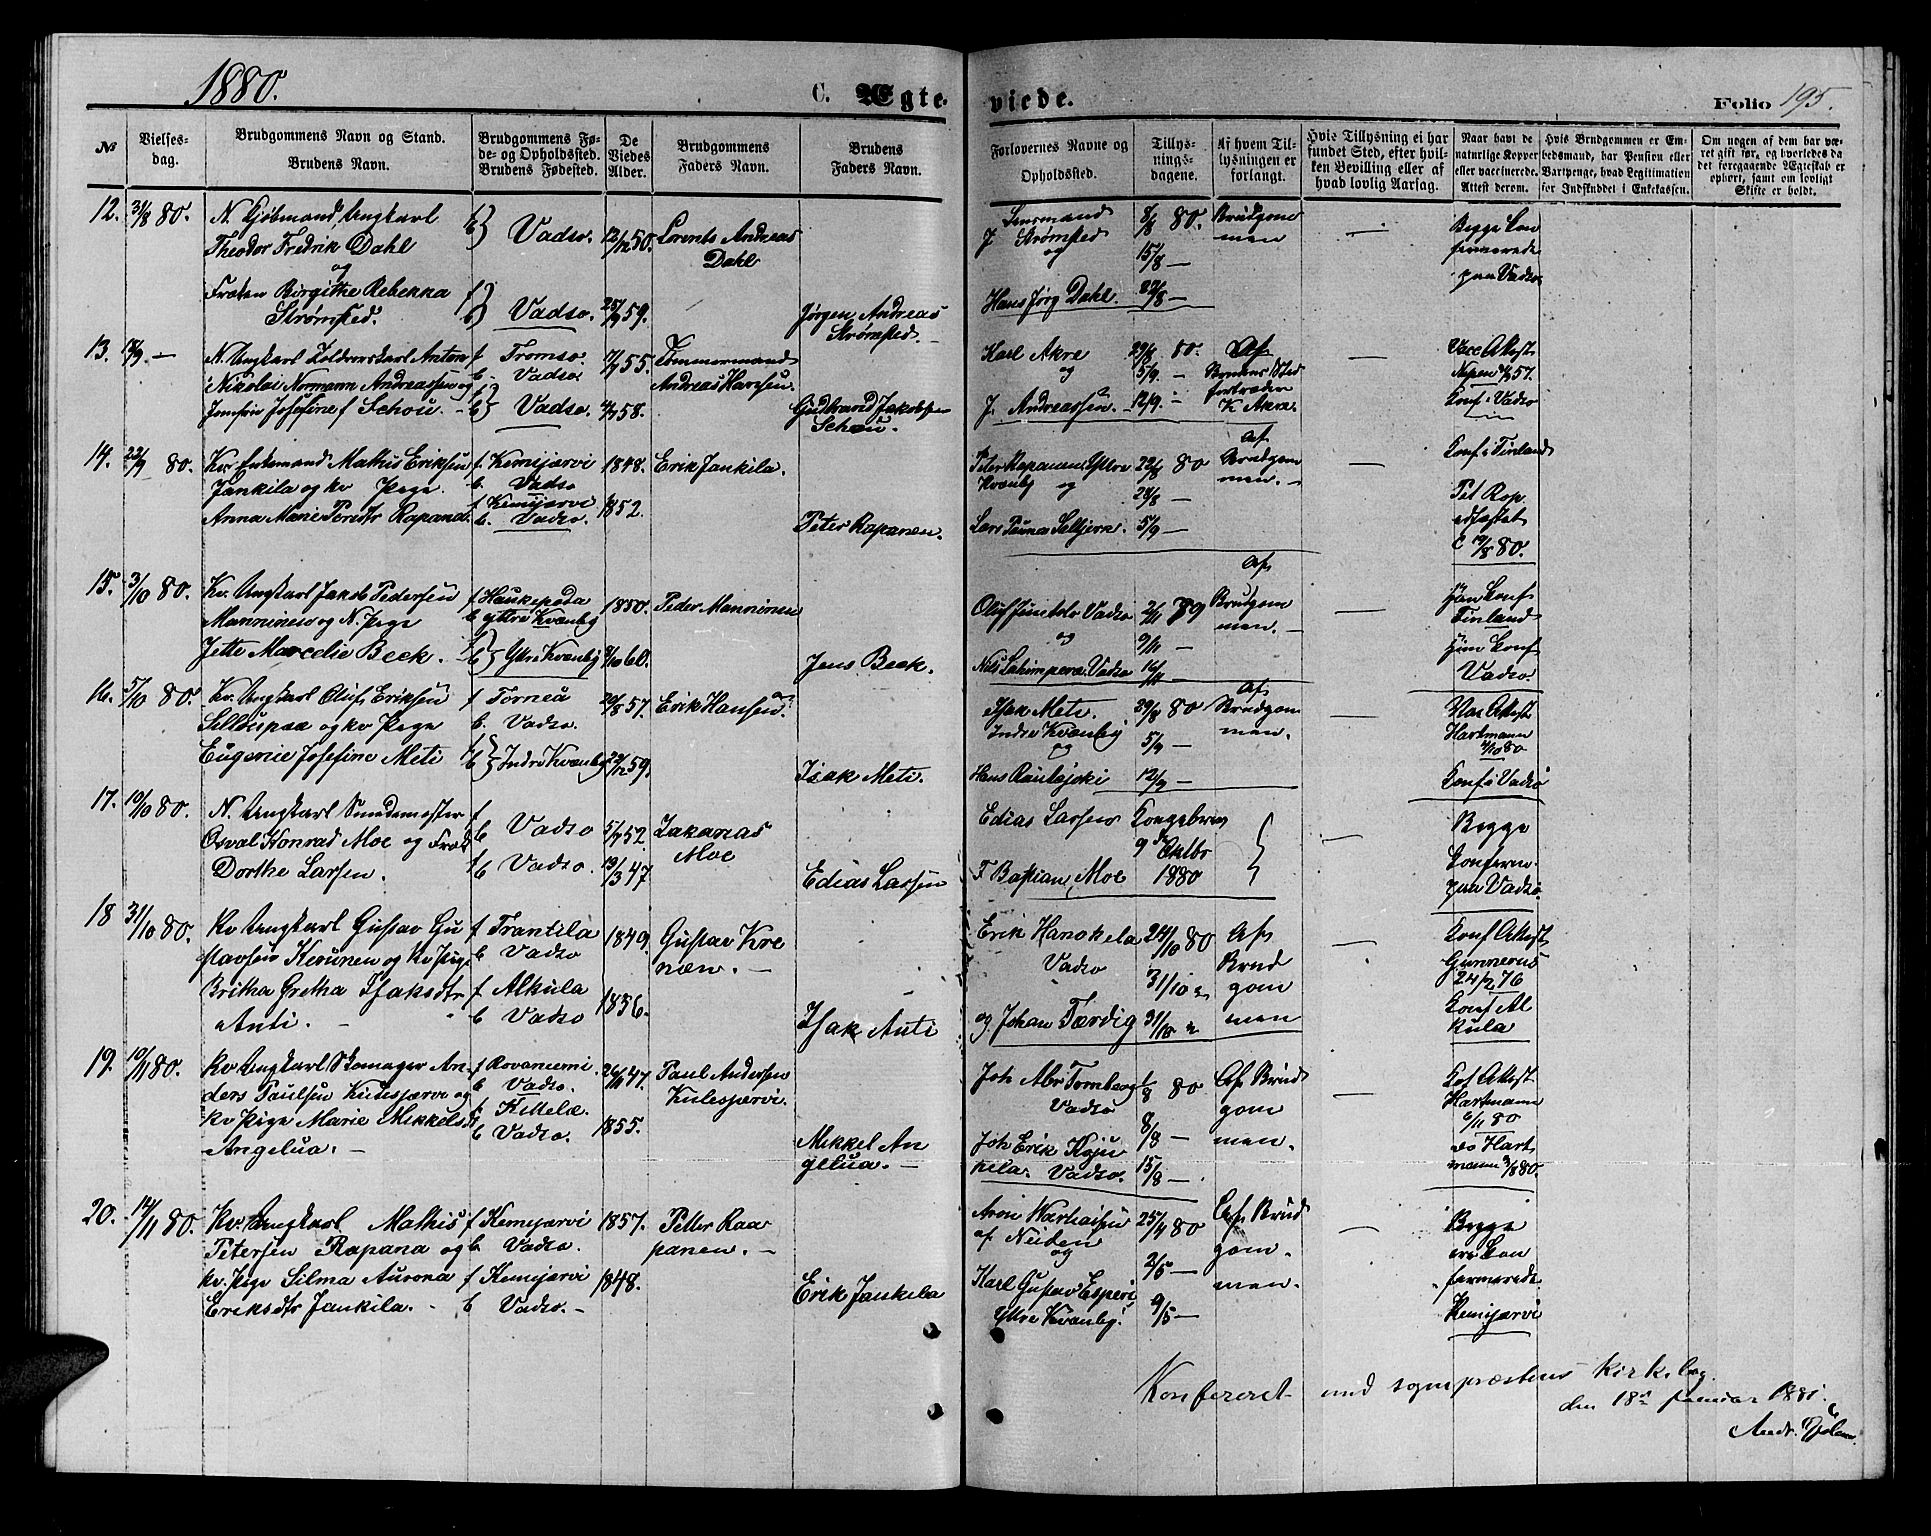 1880.
C. Ægte-
viede.
Folio 195.
№
Vielses-
dag.
Brudgommens Navn og Stand.
Brudens Navn.
Brudgommens Fø-
de- og Opholdssted.
Brudens Fødested.
De
Viedes
Alder.
Brudgommens
Faders Navn.
Brudens
Faders Navn.
Forlovernes Navne og
Opholdssted.
Tillys-
nings-
dagene.
Af hvem Til-
lysningen er
forlangt.
Hvis Tillysning ei har
fundet Sted, efter hvil-
ken Bevilling eller af
hvad lovlig Aarsag.
Naar havt de
naturlige Kopper
eller vaccinerede.
Attest derom.
Hvis Brudgommen er Em-
bedsmand, har Pension eller
Vartpenge, hvad Legitimation
for Indskuddet i Enkekassen.
Om nogen af dem har væ-
ret gift før, og hvorledes da
det foregaaende Ægteskab er
ophørt, samt om lovligt
Skifte er holdt.
12. 31/8 80.
N. Kjøbmand Ungkarl
Theodor Fredrik Dahl
og
Frøken Birgitte Rebekka
Strømsted.
Vadsø. 12/12 50.
Vadsø. 59.
Lorents Andreas
Dahl
Jørgen Andreas
Strømsted
Lensmand
J Strømsted
og
Hans Jørg Dahl.
8/8 80.
15/8 —
22/8 —
Brudgom
men
—
Begge Con
firmerede
paa Vadsø
13.
Nikolai Normann Andreassen og
Jomfru Josefine Schou.
f Tromsø.
b. Vadsø.
Vadsø. 58.
55.
Tømmermand
Andreas Hansen.
Gudbrand Jakobsen
Schou.
Karl Akre
og
J. Andreassen.
29/8 80.
5/9. —
12/9. —
Af
fortræder
K Akre.
—
Vacc Attest
Konf i Vadsø
14. 22/9 80.
Kv. Enkemand Mathis Eriksen
Jankila og kv Pige
Anna Marie Persdtr Rapana.
f. Kemijærvi
b. Vadsø
f Kemijærvi
b. Vadsø.
1848.
1852.
Erik Jankila.
Peter Rapanen.
Peter Rapanen Yttre
Kvænby og
22/8 80
28/8 —
5/9 —
Af
Brudgom
men. —
—
Konf i Finland
15. 3/10 80.
Kv. Ungkarl Jakob Pedersen
Manninen og N. Pige
Jette Marcelie Beck.
f Haukepuda
b yttre Kvænby
Yttre Kvænby
1850.
60.
Peder Manninen
Jens Beck.
Vadsø
og
Vadsø
2/11 79
9/11 —
16/11 —
Af
Brudgom
men. —
—
Han Konf
Finland
Hun Konf
Vadsø
16. 5/10 80.
Kv. Ungkarl Oluf Eriksen
og kv Pige
Eugenie Josefine Meti
f Torneå
b. Vadsø.
Indre Kvænby
57.
59.
Erik Hansen.
Isak Meti.
Isak Meti.
Indre Kvænby
og
Hans Rautajoki
29/8 80
5/9 —
12/9 —
Af
Brudgom
men.
—
Vac Attest
Hartmann
Konf i Vadsø
17. 10/10 80.
N. Ungkarl
Osval Konrad Moe og Frøk
Dorthe Larsen.
f
b Vadsø
Vadsø.
52.
47
Zakarias
Moe
Edias Larsen
Edias Larsen
F Bastian Moe
Kongebrev
9de Oktbr
1880
—
Begge
Konfirm.
paa Vadsø
18 31/10 80.
Kv Ungkarl Gustav Gu
stavsen Kerunen og Kv Pige
Britha Gretha Isaksdtr
Anti. —
f Frantila
b Vadsø
f Alkula
b Vadsø
1849.
1856.
Gustav Kre
næn. —
Isak Anti
Erik Hanokela
Vadsø
og Johan Færdig
24/10 80
31/10
31/10
Af
Brud
gom
men
—
Konf Attest
Gunnerus
Konf Al
kula
19. 80.
Kv Ungkarl Skomager An-
ders Paulsen Kulesjærvi og
kv Pige Marie Mikkelsd
Angelua. —
f Rovaniemi.
b. Vadsø.
f. Kittelæ.
b Vadsø.
47.
1855.
Paul Andersen
Kulesjærvi.
Mikkel An
gelua. —
Joh Abr Tornberg
Vadsø
Joh Erik Koju
kela. Vadsø.
1/8 80
8/8 —
15/8 —
Af Brud
gom
men.
—
Kof Attest
Hartmann
6/11 80
do Hart
mann
20. 14/11 80.
Kv. Ungkarl Mathis
Petersen Rapana og
kv. Pige Silma Aurora
Eriksdtr Jankila. —
f Kemijærvi
b. Vadsø.
f Kemijærvi
b Vadsø. —
1857.
1848.
Petter Raa
panen. —
Erik Jankila
Aron
af Neiden
og
Karl Gustav Esperi
Yttre Kvænby.
25/4 80
2/5 —
9/5 —
Af Brud
gom
men.
—
Begge
ere Con
firmerede
Kemijærvi
Konfereret med sognepræstens Kirkebog.
den 18de Januar 1881.